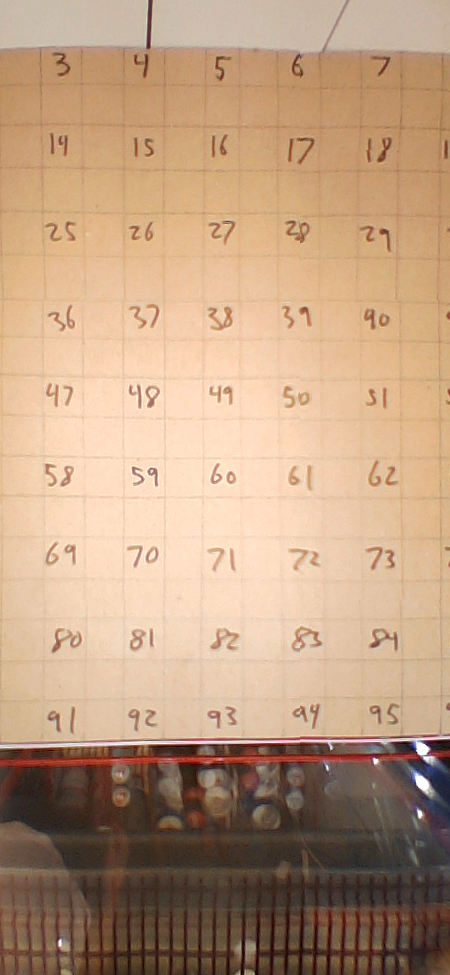 3 4 5 6 7
14 15 16 17 18
25 26 27 28 29
36 37 38 39 90
47 48 49 50 51
58 59 60 61 62
69 70 71 72 73
80 81 82 83 84
91 92 93 94 95